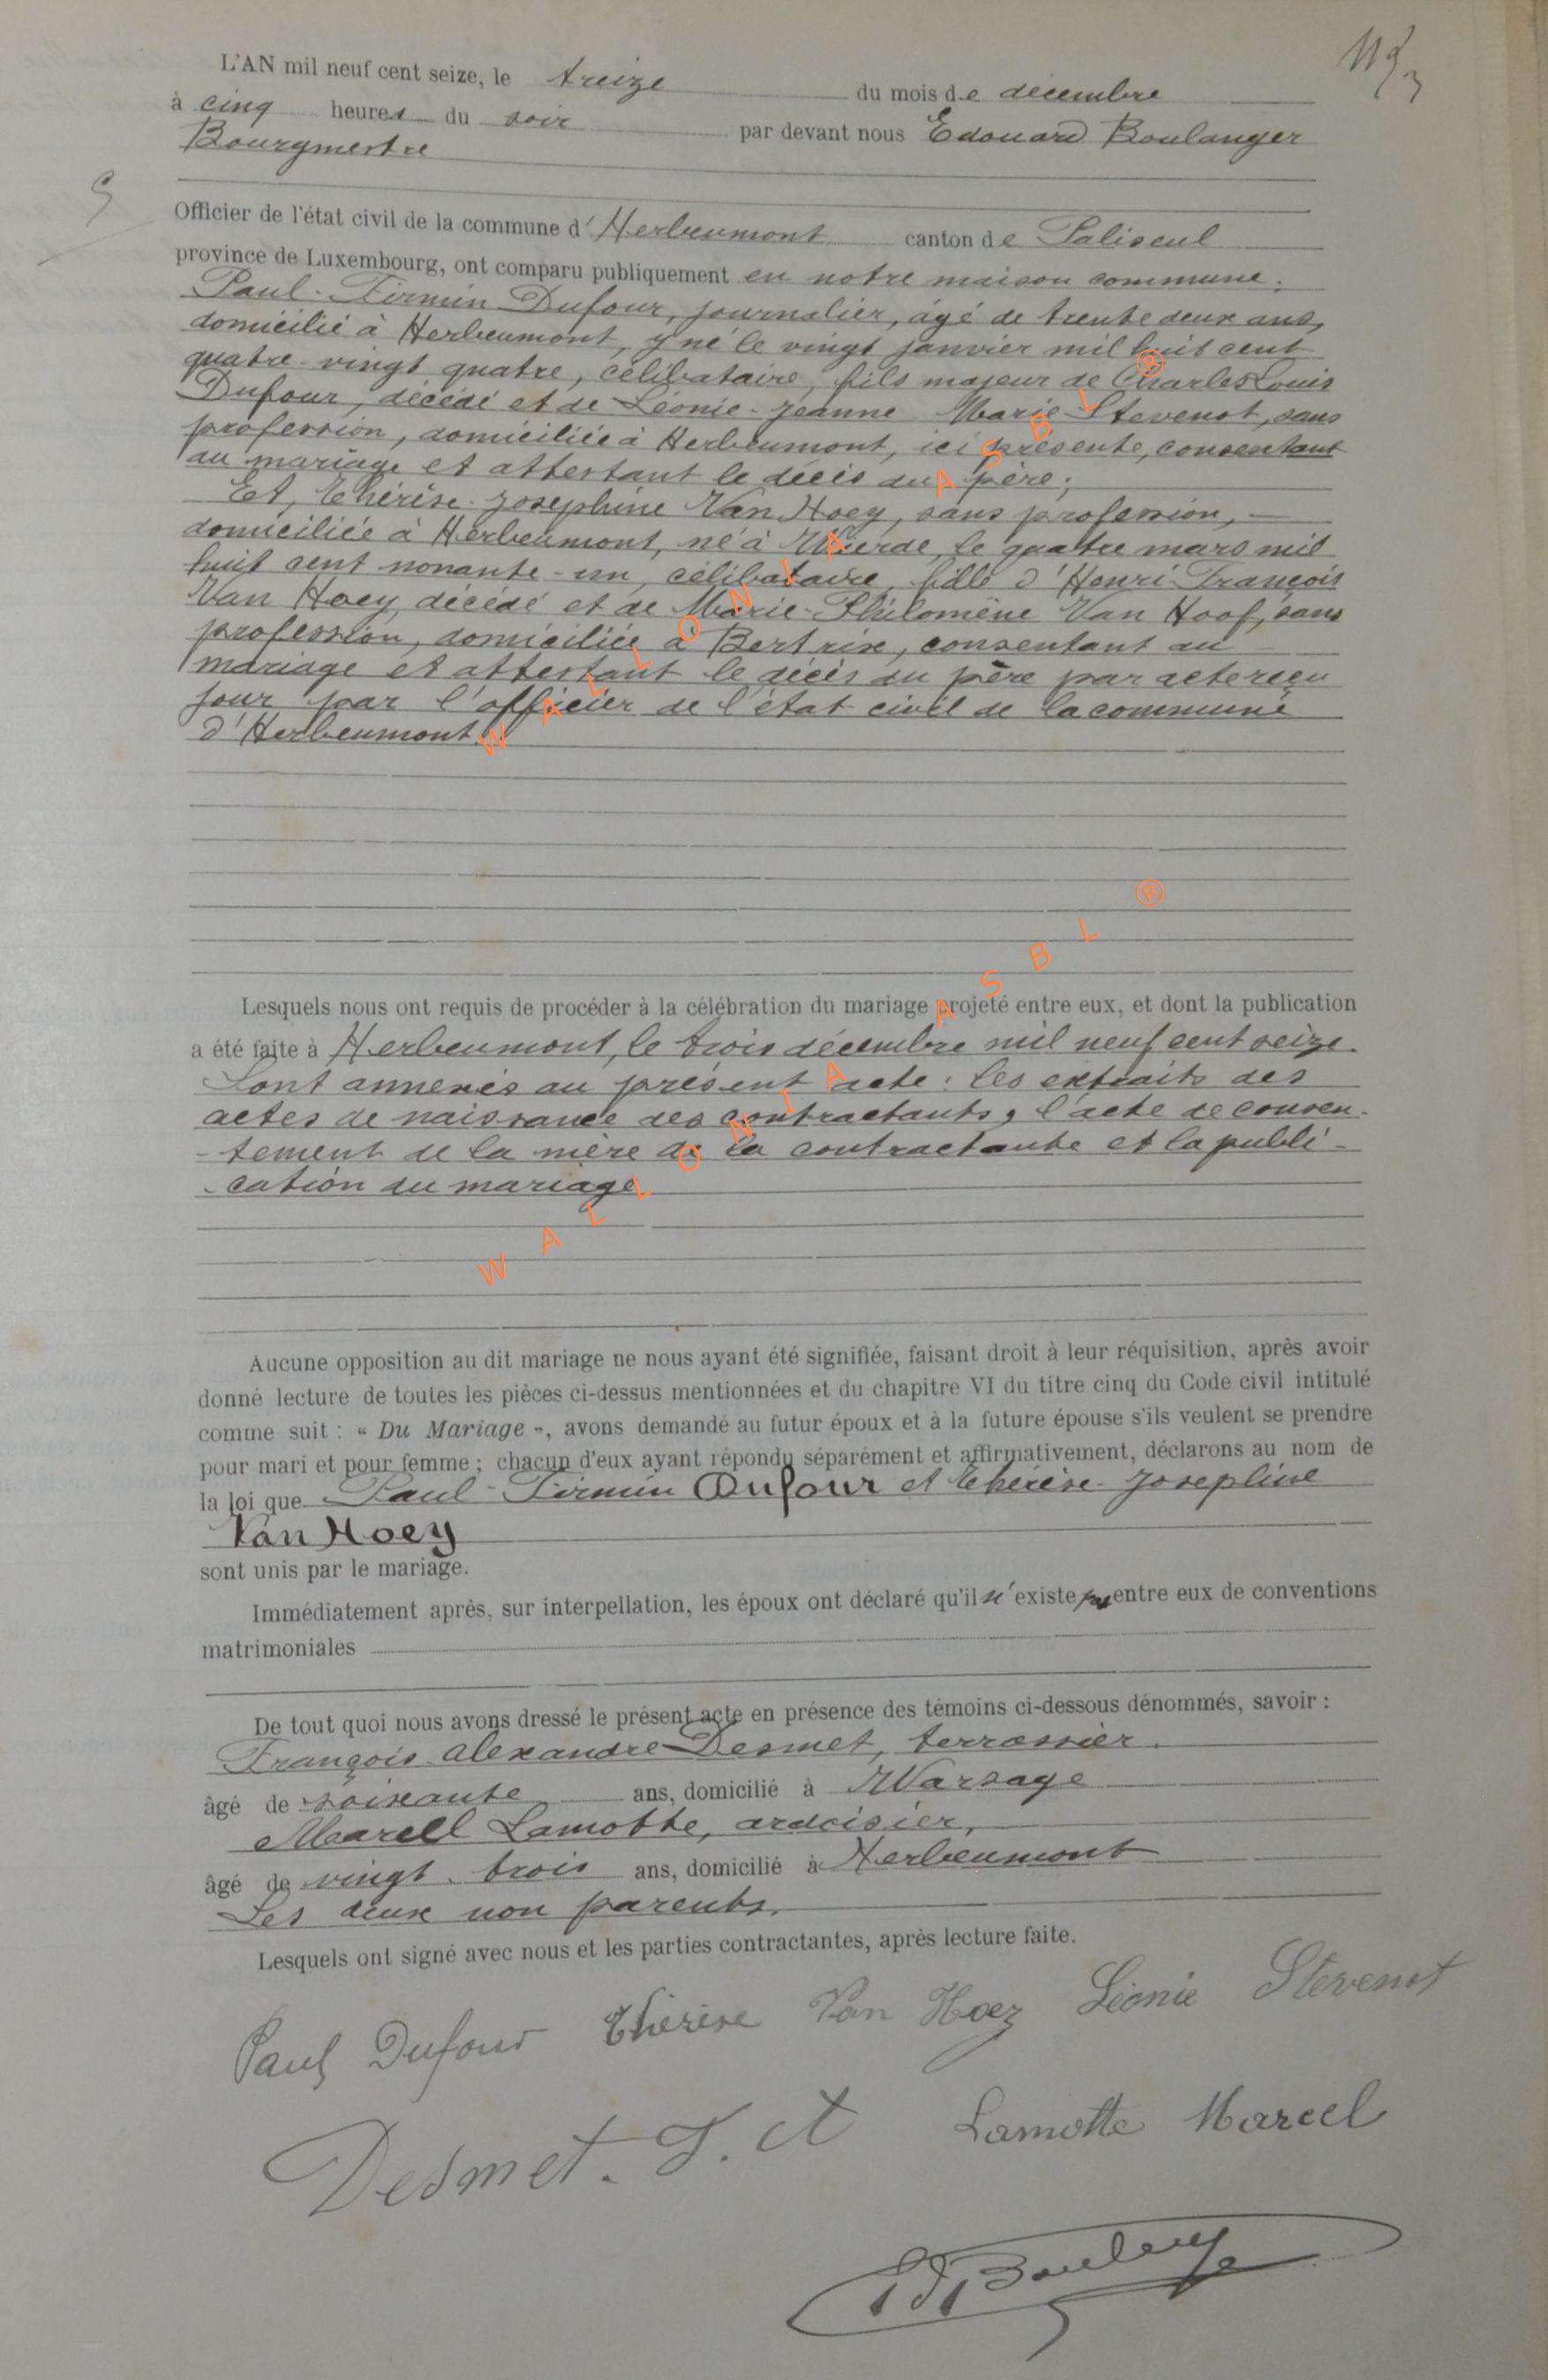 L'AN mil neuf cent seize, le treize du mois de décembre
à cinq heures du soir par devant nous Edouard Boulanger
Bourgmestre
Officier de l'état civil de la commune d'Herbeumont canton de Paliseul
province de Luxembourg, ont comparu publiquement en notre maison commune:
Paul-Firmin Dufour, journalier, âgé de trente deux ans,
domicilié à Herbeumont, y né le vingt janvier mil huit cent
quatre-vingt quatre, célibataire, fils majeur de Charles Louis
Dufour, décédé et de Léonie-Jeanne Marie Stevenot, sans
profession, domiciliée à Herbeumont, ici présente, consentant
au mariage et attestant le décès du père;
Et, Thérèse-Joséphine Van Hoey, sans profession,
domiciliée à Herbeumont, né à le quatre mars mil
huit cent nonante-un, célibataire, fille d'Henri-François
Van Hoey, décédé et de Marie-Philomène Van Hoof, sans
profession, domiciliée à Bertrix, consentant au
mariage et attestant le décès du père par acte reçu
jour par l'officier de l'état civil de la commune
d'Herbeumont.
Lesquels nous ont requis de procéder à la célébration du mariage projeté entre eux, et dont la publication
a été faite à Herbeumont, le trois décembre mil neuf cent seize.
Sont annexés au présent acte: les extraits des
actes de naissance des contractants, l'acte de consen-
-tement de la mère de la contractante et la publi-
-cation du mariage
Aucune opposition au dit mariage ne nous ayant été signifiée, faisant droit à leur réquisition, après avoir
donné lecture de toutes les pièces ci-dessus mentionnées et du chapitre VI du titre cinq du Code civil intitulé
comme suit : « Du Mariage », avons demandé au futur époux et à la future épouse s'ils veulent se prendre
pour mari et pour femme ; chacun d'eux ayant répondu séparément et affirmativement, déclarons au nom de
la loi que Paul-Firmin Dufour et Thérèse-Josephine
Van Hoey
sont unis par le mariage.
Immédiatement après, sur interpellation, les époux ont déclaré qu'il n'existe pas entre eux de conventions
matrimoniales
De tout quoi nous avons dressé le présent acte en présence des témoins ci-dessous dénommés, savoir :
François-Alexandre Desmet, terrassier.
âgé de soixante ans, domicilié à Warsage
Marcel Lamotte, ardoisier,
âgé de vingt-trois ans, domicilié à Herbeumont
Les deux non parents.
Lesquels ont signé avec nous et les parties contractantes, après lecture faite.
Paul Dufour Thérèse Van Hoey Léonie Stevenot
Desmet. F. A Lamotte Marcel
Ed Boulanger
WALLONIA ASBL ®
WALLONIA ASBL ®